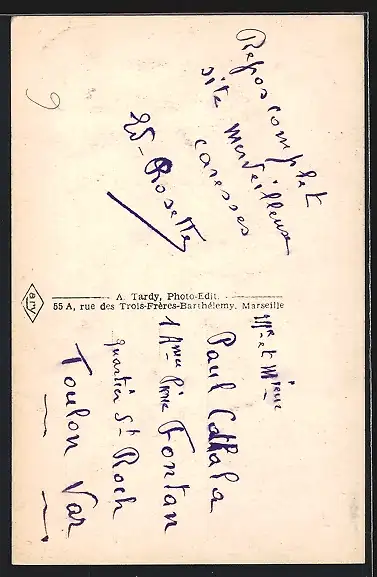 Repos complet
site merveilleux
caresses
Ed - Rosette
9
A. Tardy, Photo-Edit.
55 A, rue des Trois-Frères-Barthélemy, Marseille
ary
Mr et Mme
Paul Cathala
1 Amu Pierre Fontan
quartier St Roch
Toulon Var